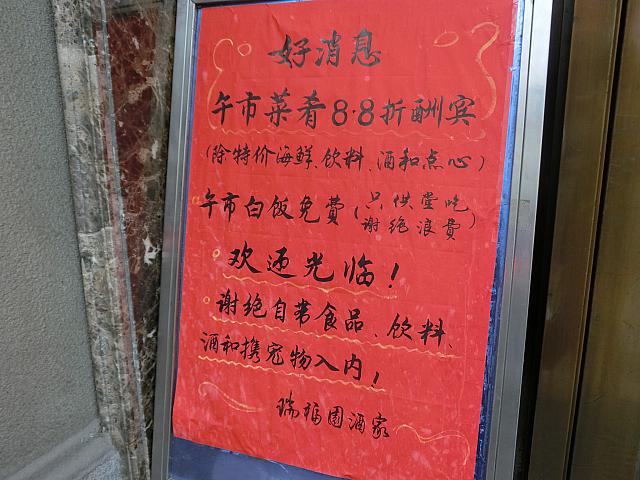 好消息
午市菜肴8.8折酬宾
(除特价海鲜、饮料、酒和点心)
午市白饭免費(只供堂吃
谢绝浪費)
欢迎光临!
谢绝自带食品、饮料、
酒和携宠物入内!
瑞福園酒家